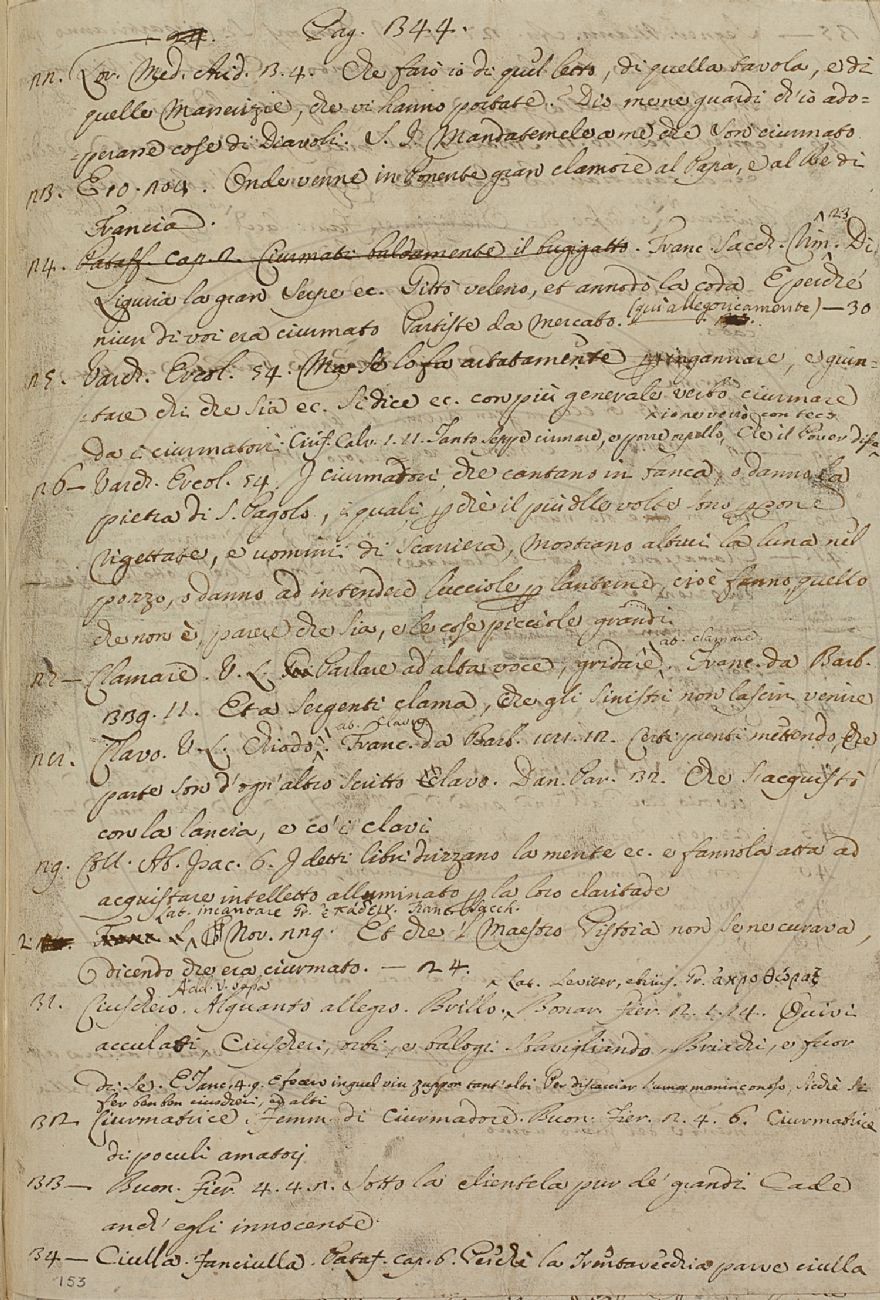 24. Pag. 344.
22. Lor. Med. Arid. 3. 4. Che farò io di quel letto, di quella tavola, e di
quelle Masserizie, che vi hanno portate? Dio mene guardi ch'io ado=
=perassi cose di Diavoli. S. I. Mandatemele a me che son ciurmato
23. E 10. 104. Onde venne in Ponente gran clamore al Papa, e al Re di
Francia.
24. Pataff. cap. 2. Ciurmati baldamente il bugigatto. Franc. Sacch. Rim. 23 Di
Liguria la gran Serpe ec. Gittò veleno, et annodò la coda E perchè
niun di voi era ciurmato Partiste da mercato. (qui allegoricamente) — 30
25. Varch. Ercol. 54. Ma se lo fa artatamente per ingannare, e giun-
-tare chi che sia ec. si dice ec. con più general verbo ciurmare
x ione verrò con teco
da i ciurmatori. Ciuf. Calv. 1. 11. Tanto seppe ciurmare, e porre, Che il Pover disa
26 — Varch. Ercol. 54. I ciurmadori, che cantano in banca, o danno la
pietra di S. Pagolo, i quali perchè il più delle volte sono persone
rigettate, e uomini di scarriera, mostrano altrui la luna nel
pozzo, o danno ad intendere lucciole per lanterne, cioè fanno quello
che non è, parere che sia, e le cose picciole grandi.
ab. clamare
27 — Clamare. V. L. Parlare ad alta voce, gridare. Franc. da Barb.
339. 11. Et a sergenti clama, Che gli sinistri non lascin venire
ab. Clavus
28. Clavo. V. L. Chiodo. Franc. da Barb. 12. Certi punti mettendo, che
parte son d'ogn'altro scritto Clavo. Dan. Par. 32. Che s'acquistò
con la lancia, e co' i clavi
29. Coll. Ab. Isac. 6. I detti libri drizzano la mente ec. e fannola atta ad
acquistare intelletto alluminato per la loro claritade
Lat. incantare Gr. ἐπᾴδειν. Franc. Sacch.
2 Nov. 229. Et che 'l Maestro Pistoia non se ne curava,
dicendo che era ciurmato. — 24.
Add. V. x Lat. Leviter, ebrius. Gr. ἀκροθώραξ
31. Ciuschero. Alquanto allegro. Brillo. Bonar. Fier. 2. 1. 14. Quivi
acculati, Ciuscheri, orbi, e balogi Stavigliando, Briachi, e fuor
di se. E Tanc. 4. 9. E fecero in quel vin zuppon tant'alti Per discacciar l'umor maninconoso, Sicchè si
fer ben ben ciuscheri, ed alti
32 Ciurmatrice. Femm. di Ciurmadore. Buon. Fier. 2. 4. 6. Ciurmatrice
di poculi amatorj
33 — Buon. Fier. 4. 4. 2. Sotto la clientela pur de' grandi Cade
anch' egli innocente.
34 — Ciulla. Fanciulla. Pataf. cap. 6. Perchè la Trentavecchia parve ciulla
153